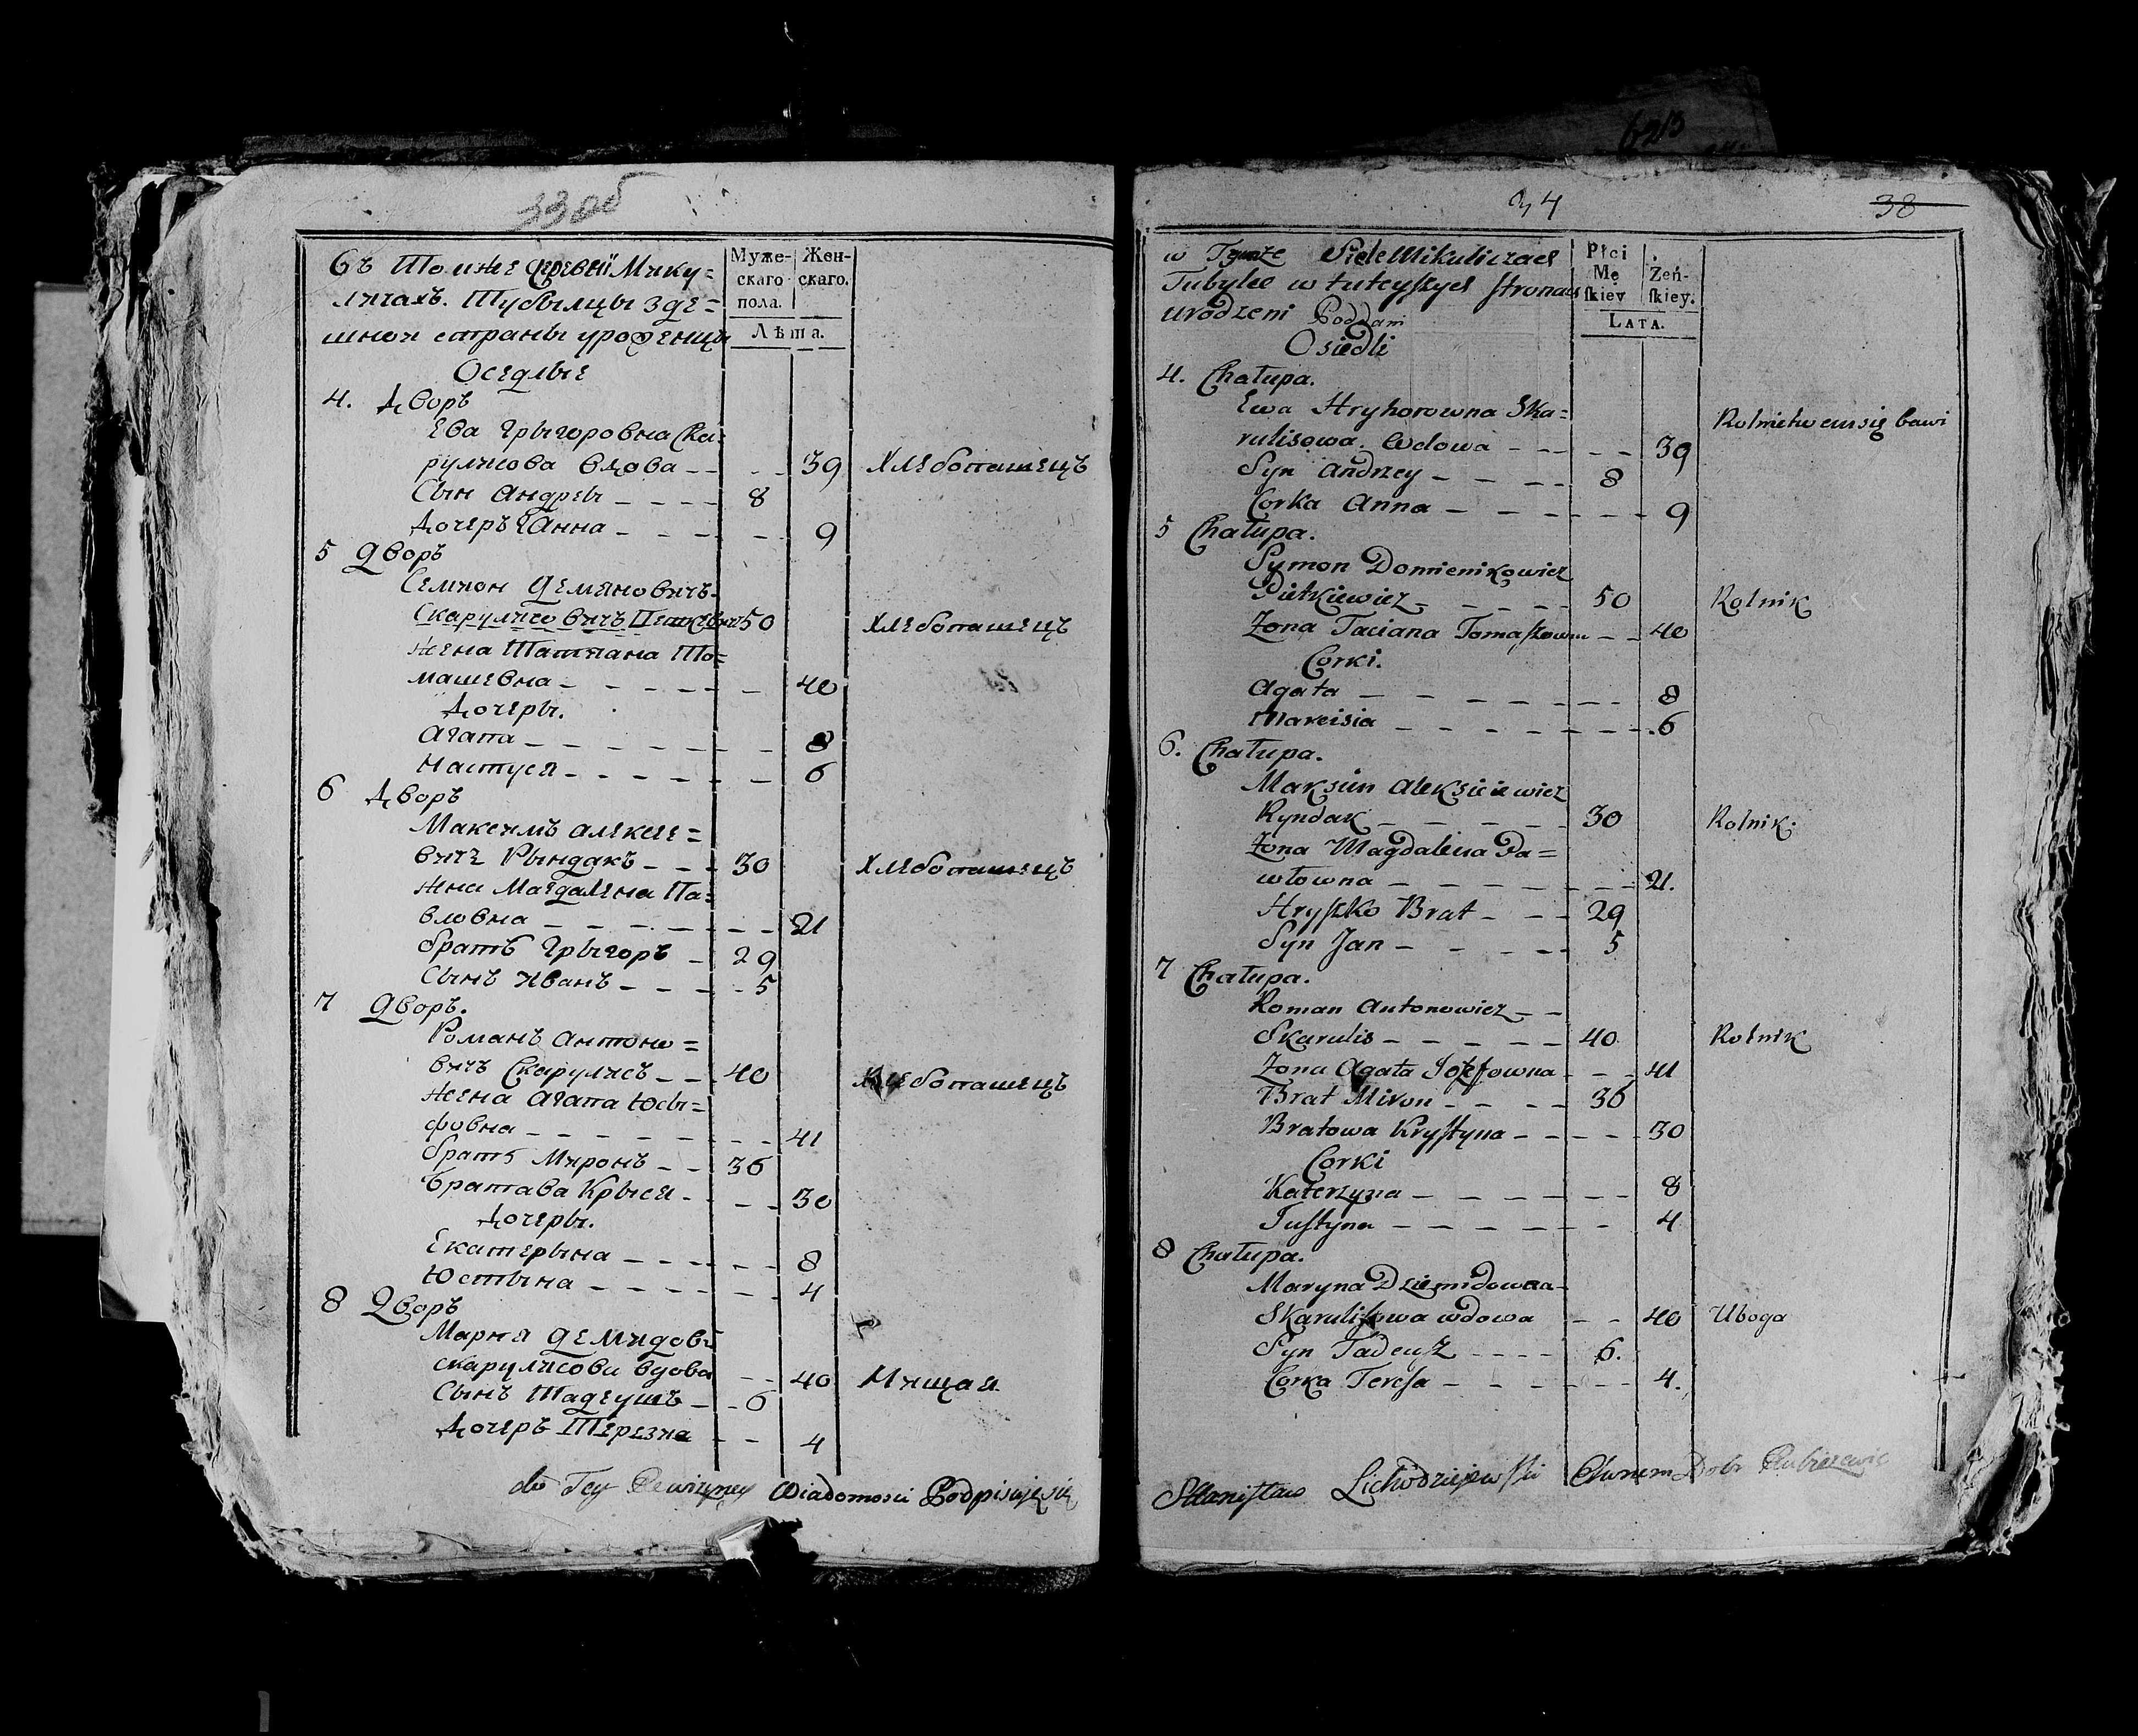 33 об
Въ Томже деревни Мику=
личахъ. Тубылцы зде=
шной страны уроженцы
Оседлые
Муже-
скаго
пола.
Жен-
скаго.
Лѣта.
4. Дворъ
Ева Грыгоровна Ска=
рулисова вдова - - - - 39 Хлебопашецъ
Сын Андреы - - - - 8
Дочеръ Анна - - - - - - 9
5 Дворъ
Семион Демяновичъ
Скарулисовичъ Петкевич 50 Хлебопашецъ
Жена Татиана То=
машевна - - - - - - 40
Дочеры.
Агапа - - - - - - - 8
Настуся - - - - - - 6
6 Дворъ
Максимъ Алексее=
вичъ Рындакъ - - - 30 Хлебопашецъ
Жена Магдалена Па=
вловна - - - - - - - - 21
братъ Грыгоръ - 29
Сынъ Иванъ - - - - 5
7 Дворъ.
Романъ Антоно=
вичъ Скарулисъ - - 40 Хлебопашецъ
Жена Агапа Юсы=
фовна - - - - - - - - 41
братъ Миронъ - - 36
Братава Крыся - - - 30
Дочеры.
Екатерына - - - - - 8
Юстына - - - - - - 4
8 Дворъ
Марыя Демидовъ
скарулисова вдова - - 40 Нищая
Сынъ Тадеушъ - - 6
Дочеръ Терезиа - - 4
do Tey Rewizyney Wiadomosci Podpisuję się
34
38
w Teymże Siele Mikuliczach
Tubylce w tuteyszych stronach
urodzeni Poddani
Osiedli
Płci
Mę
skiey
Żeń-
skiey.
LATA.
4. Chałupa.
Ewa Hryhorowna Ska=
rulisowa. Wdowa - - - - - 39 Rolnictwem się bawi
Syn Andrzey - - - - - 8
Corka Anna - - - - - - - 9
5 Chałupa.
Symon Domienikowicz
Pietkiewicz - - - - - 50 Rolnik
Żona Taciana Tomaszowna - - 40
Corki.
Agata - - - - - - - 8
Marcisia - - - - - - - - 6
6. Chałupa.
Maksim Aleksieiewicz
Ryndak - - - - - 30 Rolnik.
Żona Magdalena Pa=
włowna - - - - - - - - 21.
Hryszko Brat - - - 29
Syn Jan - - - - - 5
7 Chałupa.
Roman Antonowicz - -
Skarulis - - - - - 40 Rolnik
Żona Agata Jozefowna - - - 41
Brat Miron - - - - 36
Bratowa Krystyna - - - - - 30
Corki
Katerzyna - - - - - - - 8
Justyna - - - - - - - 4
8 Chałupa.
Maryna Dziemidowna -
Skarulisowa wdowa - - 40 Uboga
Syn Tadeusz - - - - 6.
Corka Teresa - - - - - - - 4.
Stanisław Lichodziejewski Dobr